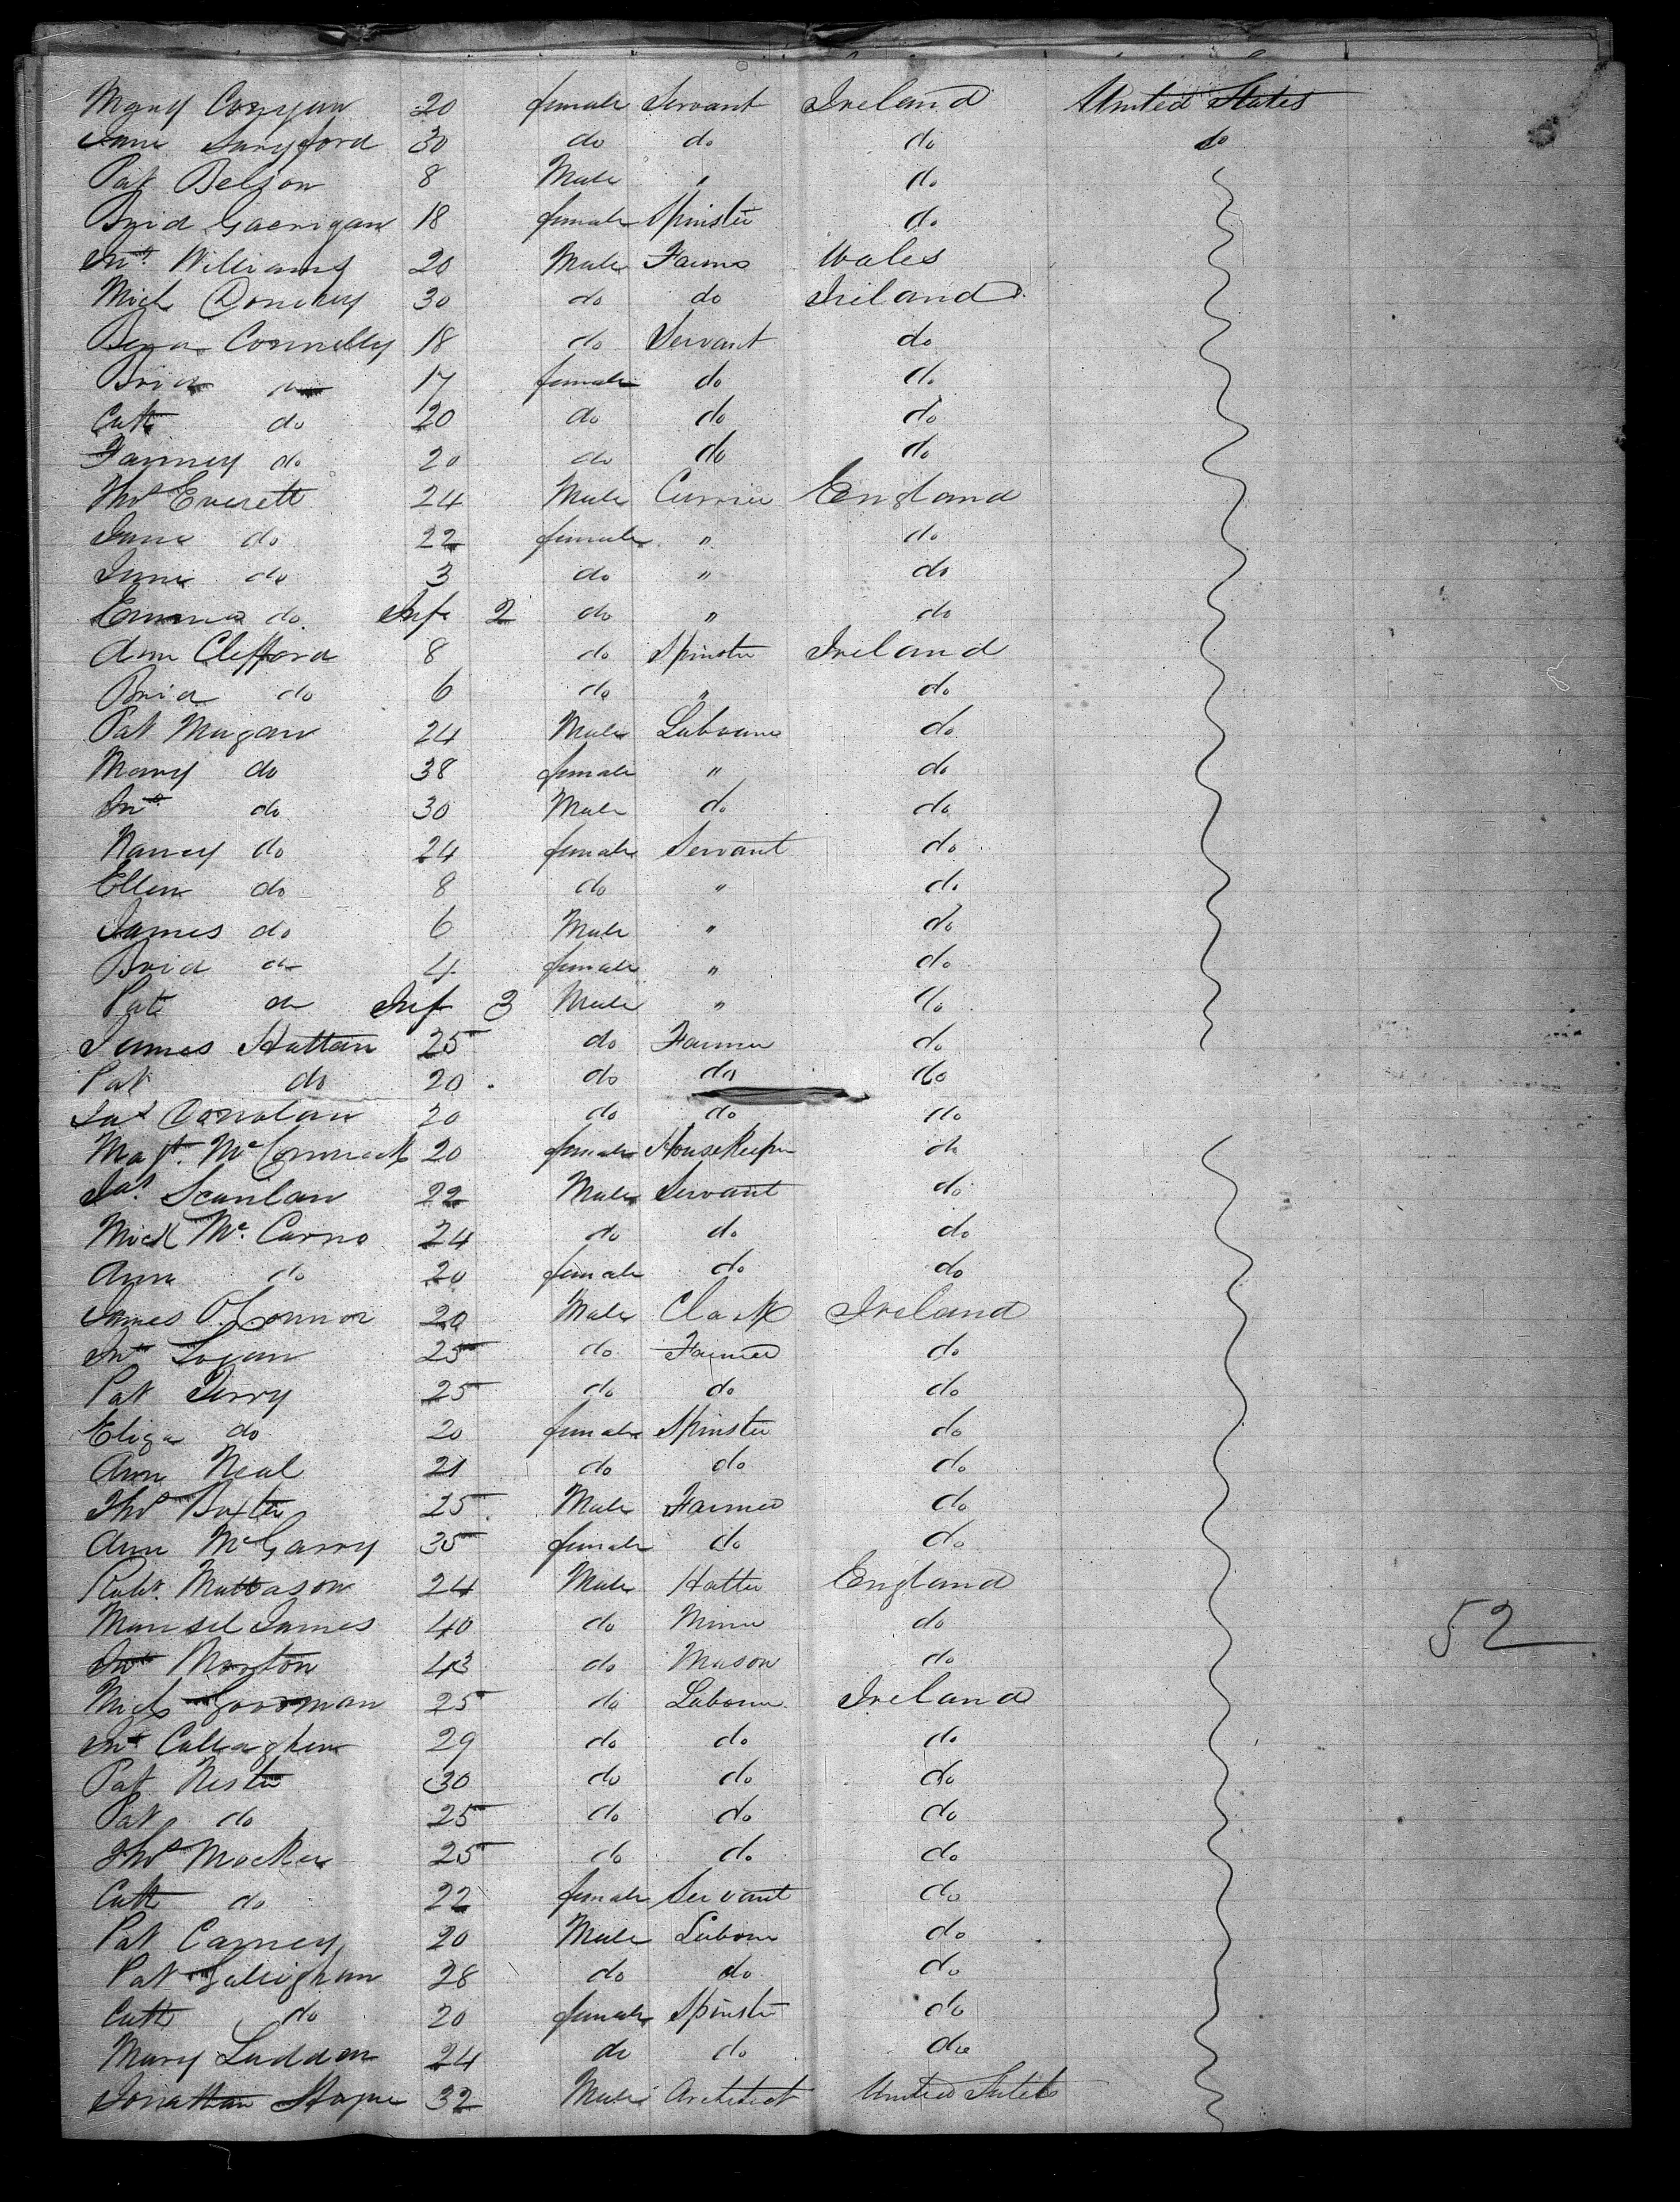 Mary Conyan 20 female Servant Ireland United States
Jane Langford 30 do do do do
Pat Belson 8 Male " do
Brid Gaerigan 18 female Spinster do
Jno. Williams 20 Male Farmer Wales
Mich 30 do do Ireland
Connelly 18 do Servant do
Brid do 17 female do do
Cath do 20 do do do
Fanney do 20 do do do
Thos Everett 24 Male Currier England
Jane do 22 female " do
Jane do 3 do " do
Emma do. Inf 2 do " do
Ann Clifford 8 do Spinster Ireland
Brid do 6 do " do
Pat Mugan 24 Male Labourer do
Mary do 38 female " do
Jno do 30 Male do do
Nancy do 24 female Servant do
Ellen do 8 do " do
James do 6 Male " do
Brid do 4 female " do
Pat do Inf 3 Male " do
James Hattan 25 do Farmer do
Pat do 20 do do do
Jas Donolan 20 do do do
Magt. McCormack 20 female HouseKeeper do
Jas. Scanlan 22 Male Servant do
Mick Mc. Carno 24 do do do
Ann do 20 female do do
James O.Connor 20 Male Clark Ireland
Jno Logan 25 do Farmer do
Pat Derry 25 do do do
Eliza do 20 female Spinster do
Ann Neal 21 do do do
Thos Baxter 25 Male Farmer do
Ann McGarry 35 female do do
Robt. Mattason 24 Male Hatter England
Mansel James 40 do Miner do
Jno Morton 43 do Mason do
52
Mich Goodman 25 do Labourer Ireland
Jno Callaghan 29 do do do
Pat Nester 30 do do do
Pat do 25 do do do
Thos Mocker 25 do do do
Cath do 22 female Servant do
Pat Carney 20 Male Labourer do
Pat Galleighan 28 do do do
Cath do 20 female Spinster do
Mary Ludden 24 do do do
Jonathan 32 Male Architect United States